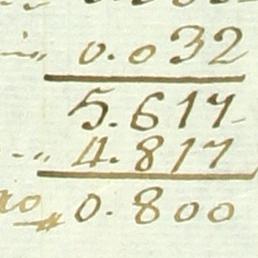 0.032
5.617
4.817
0.800